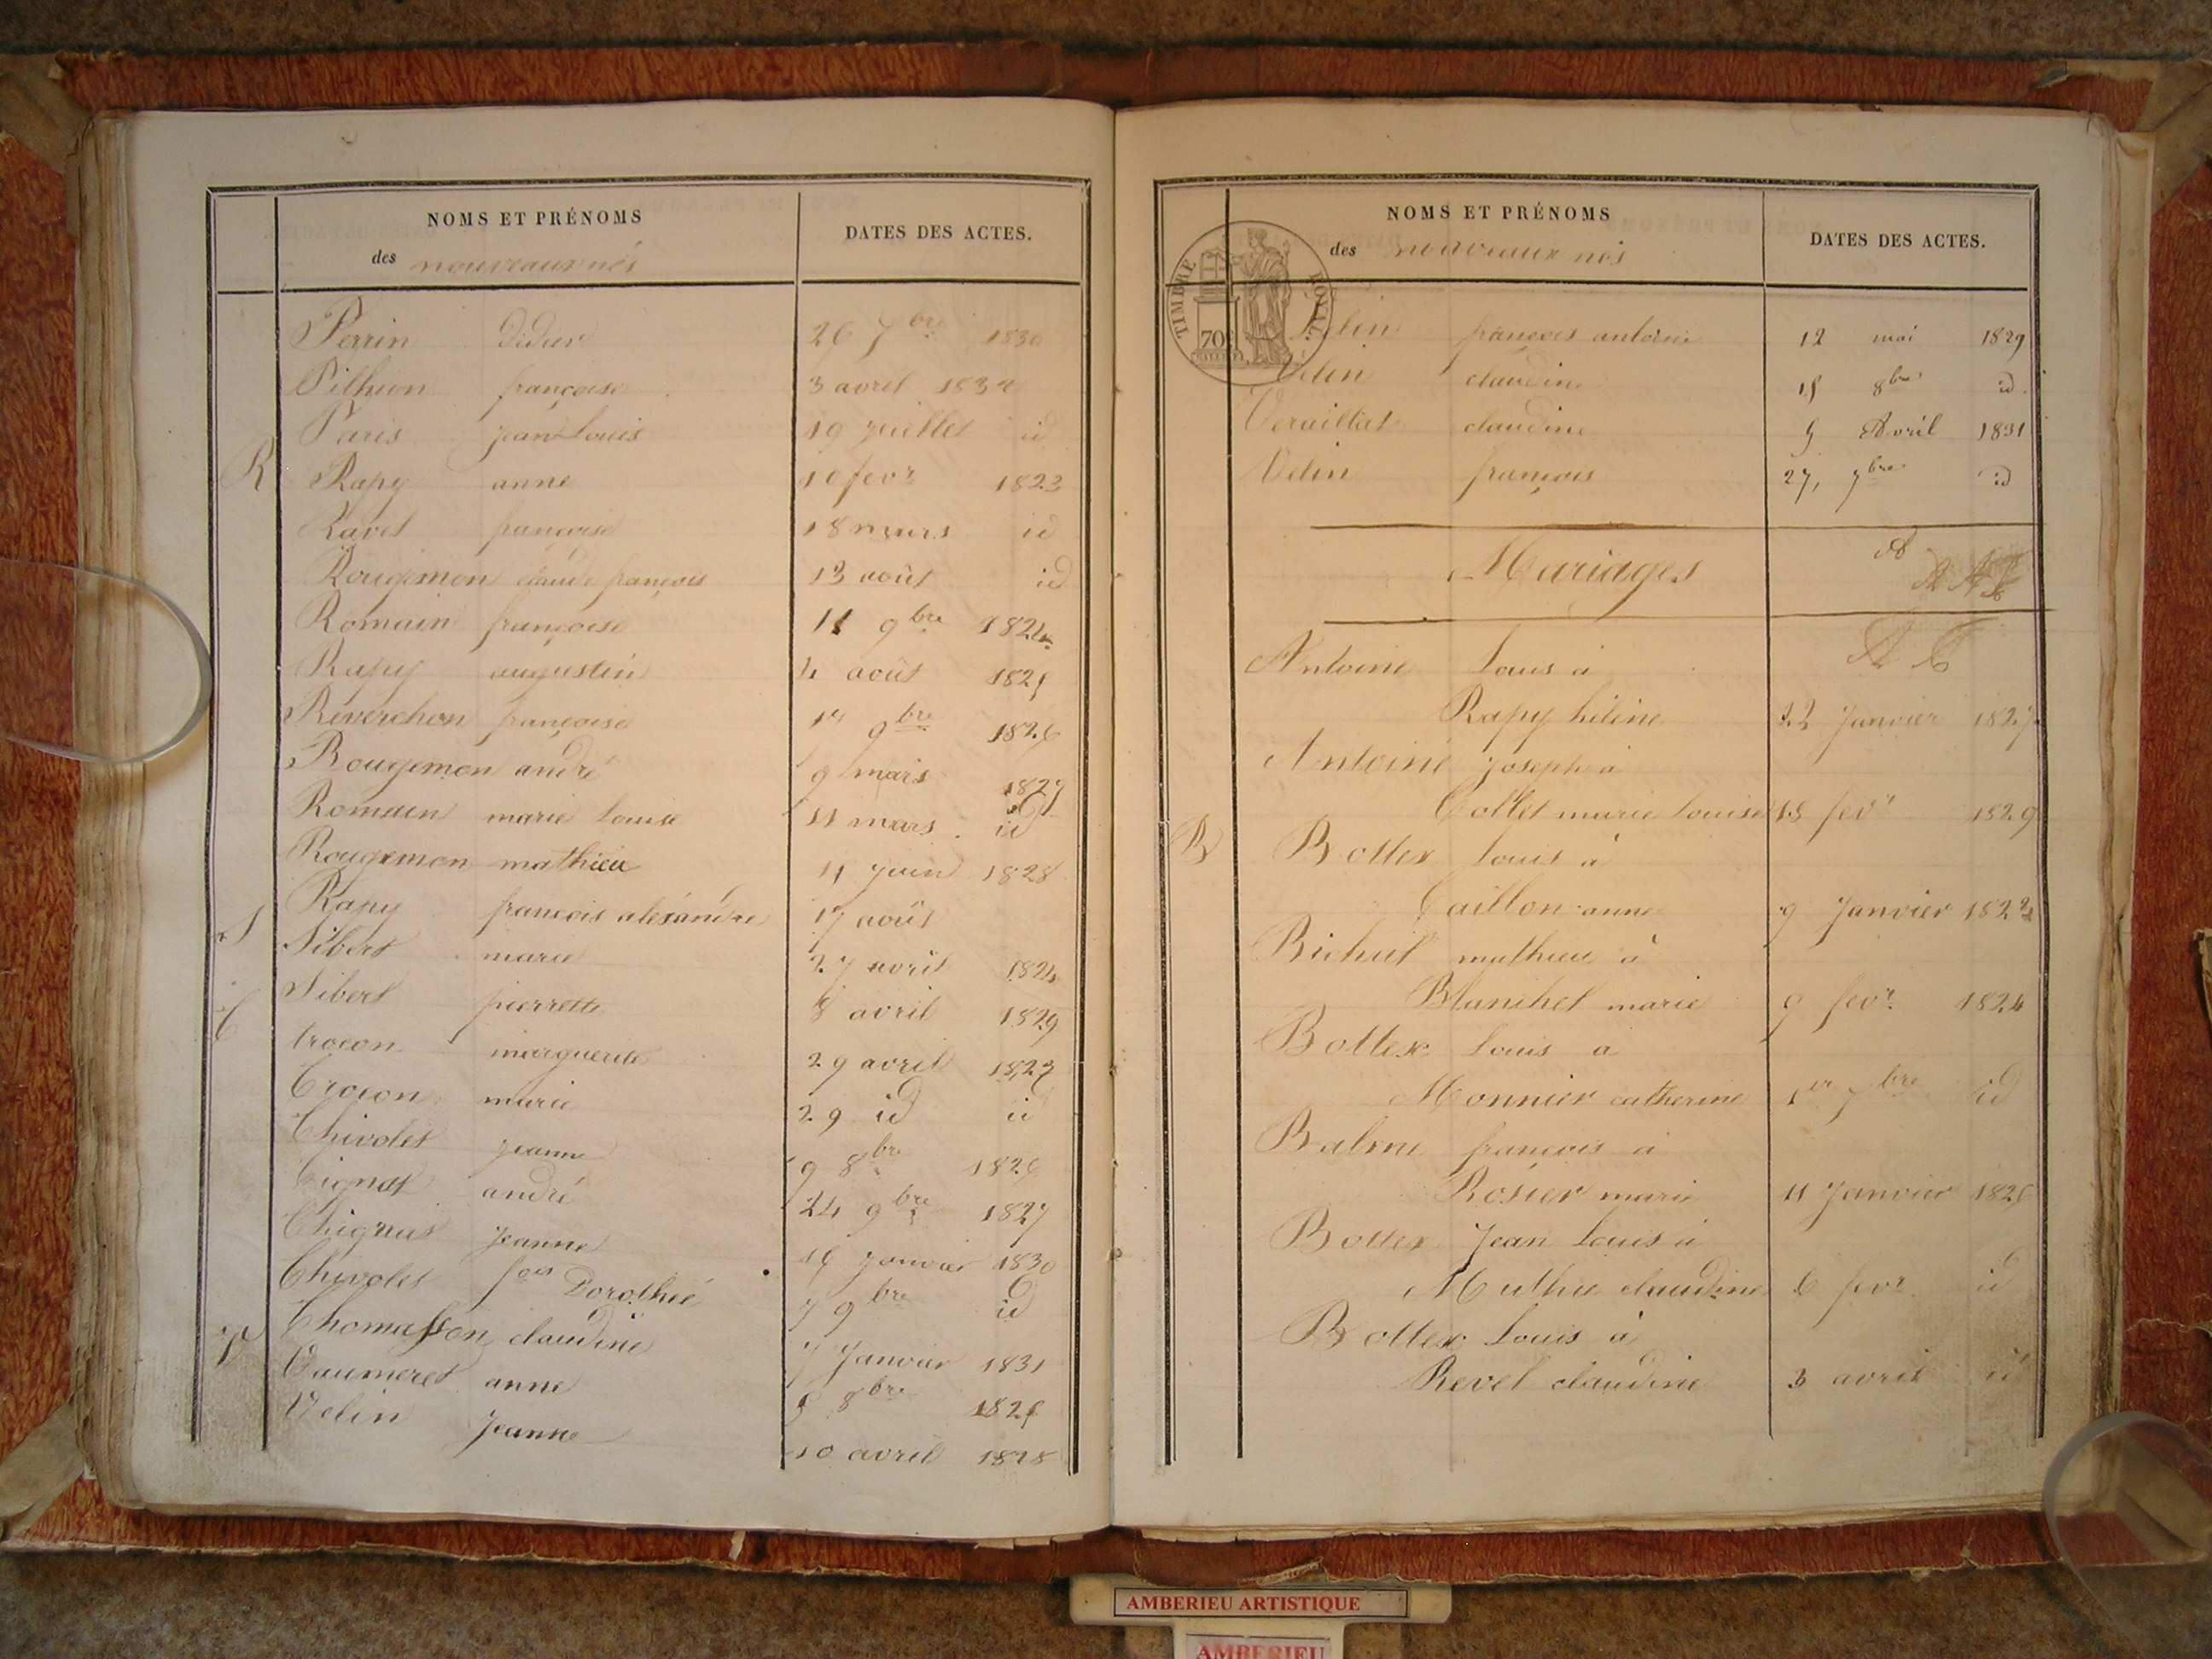 NOMS ET PRÉNOMS
des nouveaux nés
DATES DES ACTES.
Perrin Didier 26 7bre 1830
Pithion françoise 3 avril 1832
Paris jean Louis 19 juillet id
R Rapy anne 10 fevr 1823
Ravet françoise 18 mars id
Rougemon claude françois 13 août id
Romain françoise 11 9bre 1824
Rapy augustin 4 août 1825
Reverchon françoise 9bre 1826
Rougemon andré 9 mars 1827
Romain marie Louise 11 mars id
Rougemon mathieu 11 juin 1828
Rapy françois alexandre 17 août
S Sibert marie 27 avril 1824
Sibert pierrette 8 avril 1829
t trocon marguerite 29 avril 1823
trocon marie 29 id id
Thivolet jeanne 9 8bre 1826
tignat andré 24 9bre 1827
Thignat Jeanne 15 janvier 1830
Thivolet fois Dorothée 7 9bre id
Thomasson claudine 7 Janvier 1831
V Vaumeret anne 5 8bre 1825
Velin Jeanne 10 avril 1828
NOMS ET PRÉNOMS
des nouveaux nés
DATES DES ACTES.
TIMBRE ROYAL
70c
Velin françois antoine 12 mai 1829
Velin claudine 15 8bre id
Veraillat claudine 5 Avril 1831
Velin françois 27, 7bre id
Mariages
A
Antoine Louis à
Rapy hélène 22 Janvier 1827
Antoine joseph à
Collet marie louise 18 fevr 1829
B Bottex Louis à
Caillon anne 9 Janvier 1822
Bichat mathieu à
Blanchet marie 9 fevr 1824
Bottex Louis a
Monnier catherine 1er 7bre id
Balme françois à
Rosier marie 11 Janvier 1825
Bottex Jean Louis à
Muthie claudine 6 fevr id
Bottex Louis à
Revel claudine 3 avril id
AMBERIEU ARTISTIQUE
AMBERIEU